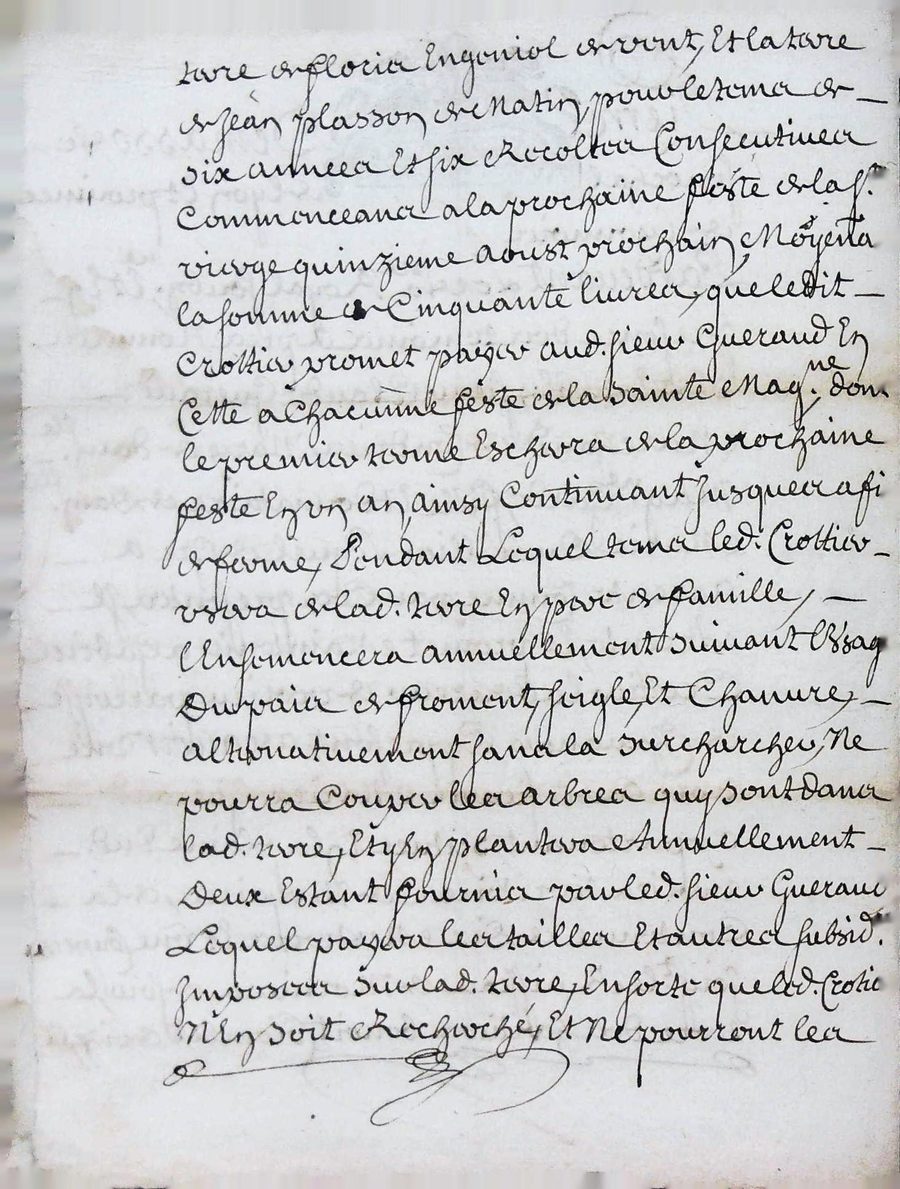 terre de floria Engeniol de vent, Et la terre
de Jean plasson de Matin, pour le tems de _
six années Et six Recoltes Consecutives
Commenceant a la prochaine feste de la S.te
vierge quinzieme aoust prochain, Moyent
la somme de Cinquante livres, que ledit _
Crottier promet payer aud. sieur Gueraud En
Cette a Chacunne feste de la Sainte Mag.ne dont
le premier terme Eschera de la prochaine
feste En un an, ainsy Continuant Jusques a fi
de ferme, Pendant Lequel tems led. Crottier _
usera de lad. terre En pere de famille, _
l'Ensemencera annuellement Suivant l'Usag
Du pais de froment, seigle, Et Chanvre, _
alternativement sans la Surcharcher, Ne
pourra Couper les arbres quy sont dans
lad. terre, Et y En plantera Annuellement _
Deux Estant fournis par led. sieur Gueraud
Lequel payera les tailles Et autres subsid.
Imposées Sur lad. terre, En sorte que led. Crotie
N'En soit Recherché, Et Ne pourront les